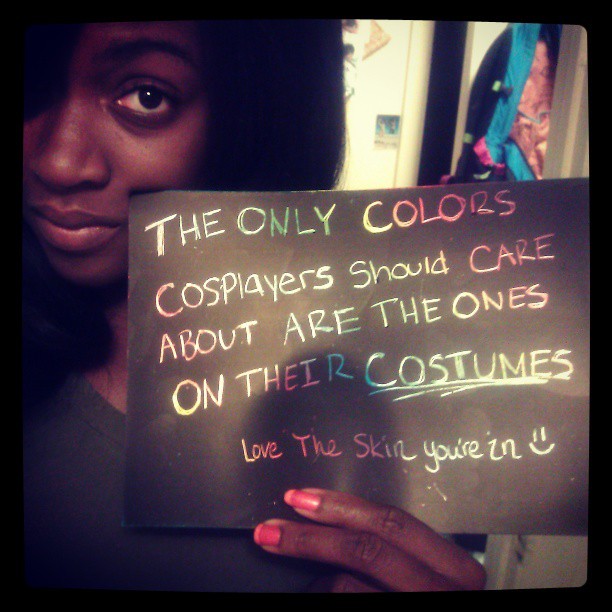 THE ONLY COLORS
COSPlayERS Should CARE
ABOUT ARE THE ONES
ON THEIR COSTUMES
Love The Skin you're in